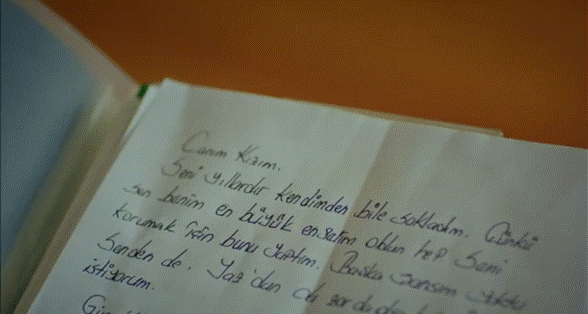 Canım Kızım.
Seni yıllardır kendimden bile sakladım. Çünkü
sen benim en büyük en oldun hep Seni
korumak için bunu yaptım. Başka şansım yoktu
Senden de, Yaz'dan da
istiyorum.